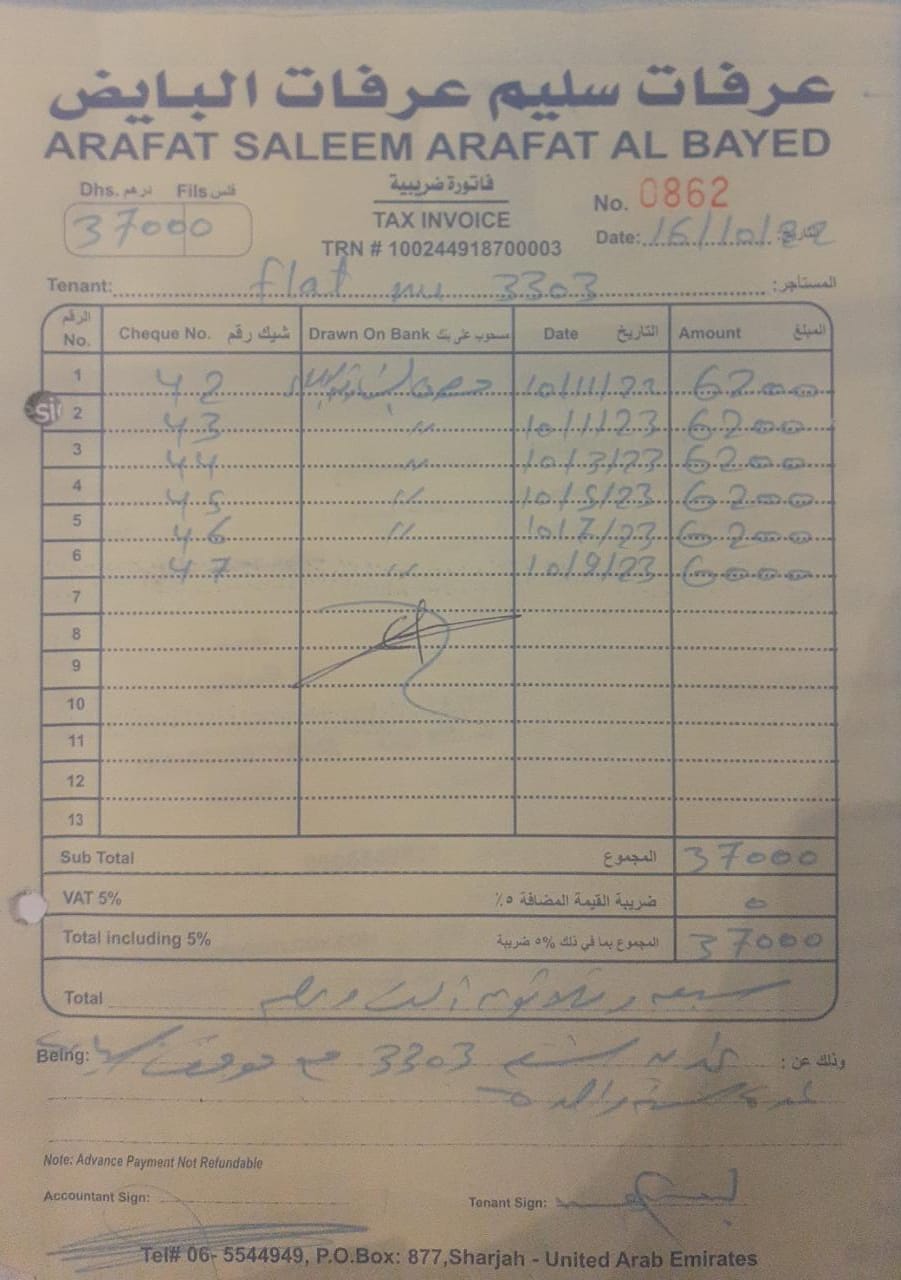 عرفات سليم عرفات البايض
ARAFAT SALEEM ARAFAT AL BAYED
Dhs. درهم Fils فلس
37000
فاتورة ضريبية
TAX INVOICE
TRN # 100244918700003
No. 0862
Date: 16/10/22 التاريخ:
Tenant: flat no 3303 المستأجر:
الرقم No. Cheque No. شيك رقم Drawn On Bank مسحوب على بنك Date التاريخ Amount المبلغ
1 42 10/11/22 6200
2 43 " 10/1/23 6200
3 44 " 10/3/23 6200
4 45 " 10/5/23 6200
5 46 " 10/7/23 6200
6 47 " 10/9/23 6000
7
8
9
10
11
12
13
Sub Total المجموع 37000
VAT 5% ضريبة القيمة المضافة ٥٪ 0
Total including 5% المجموع بما في ذلك ٥% ضريبة 37000
Total سبعة وثلاثون ألف درهم
Being: 3303 مع وذلك عن :
سنة واحدة
Note: Advance Payment Not Refundable
Accountant Sign:
Tenant Sign:
Tel# 06- 5544949, P.O.Box: 877,Sharjah - United Arab Emirates